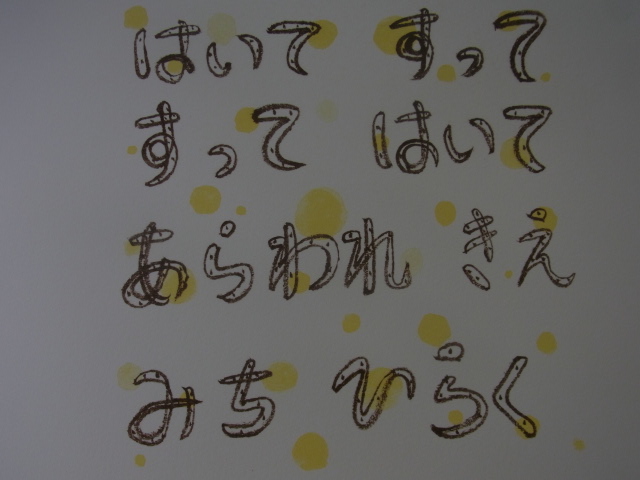 はいて すって
すって はいて
あらわれ きえ
みち ひらく